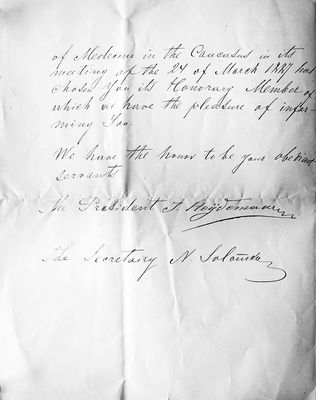 of Medecine in the Caucasus in its
meeting of the 24 of March 1887 has
chosen You its Honorary Member of
which we have the pleasure of infor-
ming You.
We have the honor to be your obedient
servants
The President
The Secretary N.